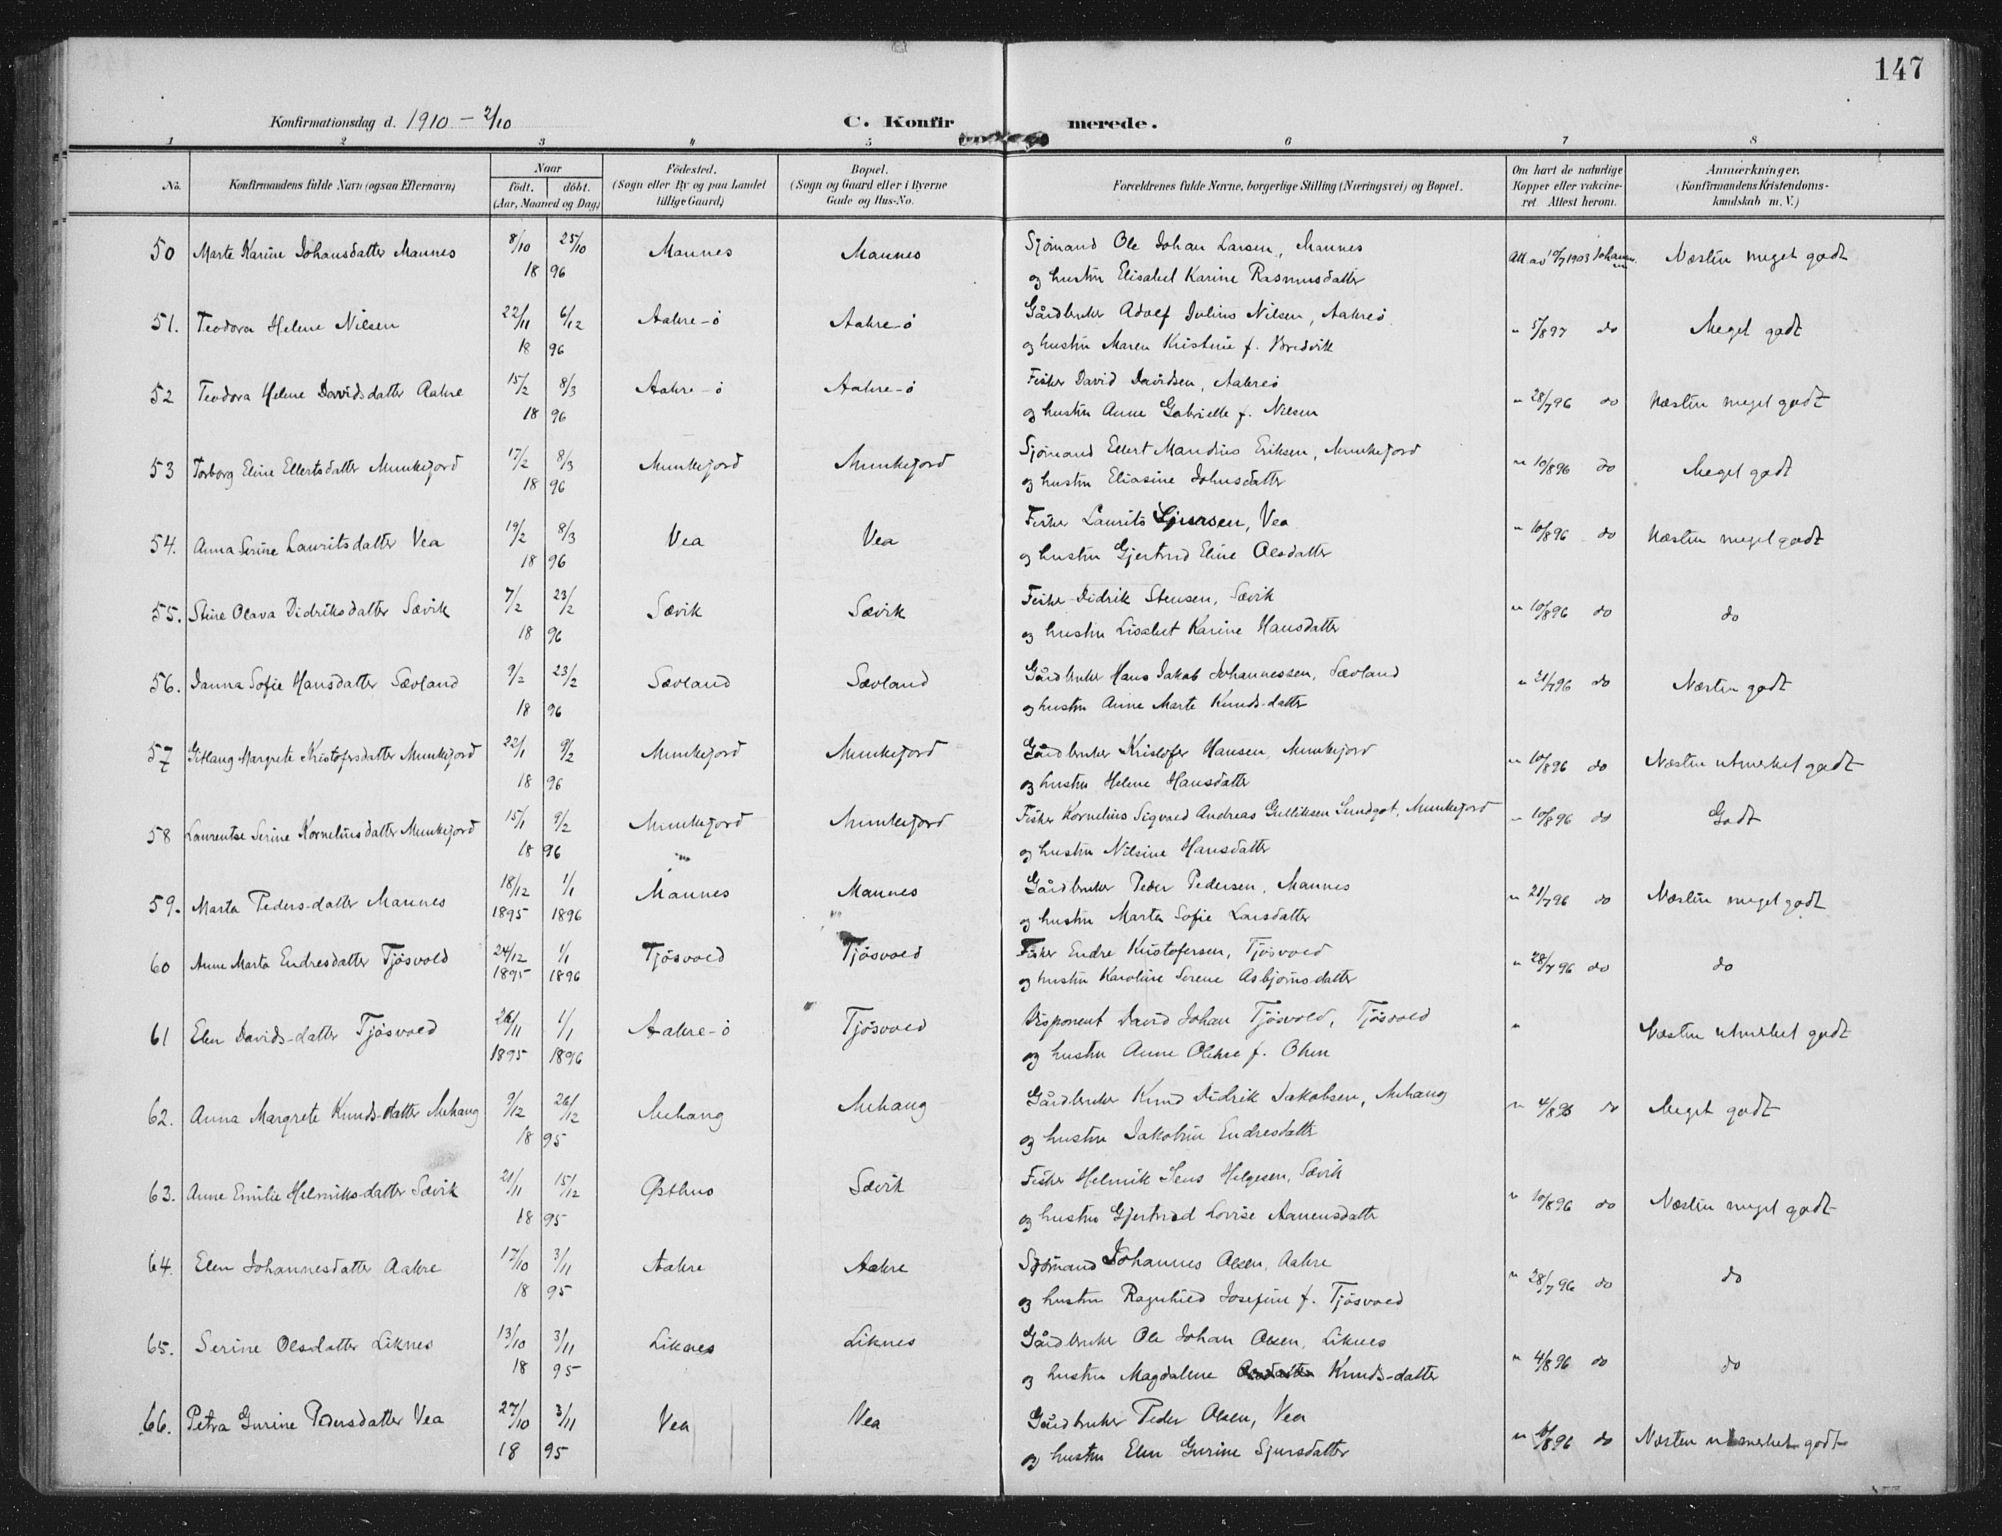 147
Konfirmationsdag d. 1910 - 2/10
C. Konfirmerede.
1 2 3 4 5 6 7 8
No. Konfirmandens fulde Navn (ogsaa Efternavn)
Naar
födt. döbt.
(Aar, Maaned og Dag)
Födested.
(Sogn eller By og paa Landet
tillige Gaard)
Bopæl.
(Sogn og Gaard eller i Byerne
Gade og Hus-No.
Forældrenes fulde Navne, borgerlige Stilling (Næringsvei) og Bopæl.
Om havt de naturlige
Kopper eller vakcine-
ret Attest herom.
Anmærkninger.
(Konfirmandens Kristendoms-
kundskab m. V.)
50 Marte Karine Johansdatter Mannes 8/10 25/10 Mannes Mannes Sjömand Ole Johan Larsen, Mannes Att av 10/7 1903 Næsten meget godt
18 96 og hustru Elisabet Karine Rasmusdatter
51. Teodora Helene Nilsen 22/11 6/12 Aakre-ö Aakre-ö Gårdbruker Adolf Julius Nilsen, Aakreö " 5/8 97 do Meget godt
18 96 og hustru Maren Kristine f. Bredvik
52 Teodora Helene Davidsdatter Aakre 15/2 8/3 Aakre-ö Aakre-ö Fisker David Davidsen, Aakreö " 28/7 96 do Næsten meget godt
18 96 og hustru Anne Gabrielle f. Nilsen
53 Torborg Eline Ellertsdatter Munkejord 17/2 8/3 Munkejord Munkejord Sjömand Ellert Mandius Eriksen, Munkejord " 10/8 96 do Meget godt
18 96 og hustru Eliasine Johnsdatter
54. Anna Serine Lauritsdatter Vea 19/2 8/3 Vea Vea Fisker Laurits Sjursen, Vea " 10/8 96 do Næsten meget godt
18 96 og hustru Gjertrud Eline Olsdatter
55. Stine Olava Didriksdatter Sævik 7/2 23/2 Sævik Sævik Fisker Didrik Stensen, Sævik " 10/8 96 do do
18 96 og hustru Lisabet Karine Hansdatter
56. Janna Sofie Hansdatter Sævland 9/2 23/2 Sævland Sævland Gårdbruker Hans Jakob Johannessen, Sævland " 21/7 96 do Næsten godt
18 96 og hustru Anne Marte Knuds-datter
57 Gitlaug Margrete Kristofersdatter Munkejord 22/1 9/2 Munkejord Munkejord Gårdbruker Kristofer Hansen, Munkejord " 10/8 96 do Næsten utmerket godt
18 96 og hustru Helene Hansdatter
58 Laurentse Serine Korneliusdatter Munkejord 15/1 9/2 Munkejord Munkejord Fisker Kornelius Sigvald Andreas Gulliksen Sundgot, Munkejord " 10/8 96 do Godt
18 96 og hustru Nilsine Hansdatter
59. Marta Peders-datter Mannes 18/12 1/1 Mannes Mannes Gårdbruker Peder Pedersen, Mannes " 21/7 96 do Næsten meget godt
1895 1896 og hustru Marta Sofie Larsdatter
60 Anne Marta Endresdatter Tjösvold 24/12 1/1 Tjösvold Tjösvold Fisker Endre Kristofersen, Tjösvold " 28/7 96 do do
1895 1896 og hustru Karoline Serene Asbjörnsdatter
61 Elen Davids-datter Tjösvold 26/11 1/1 Aakre-ö Tjösvold Disponent David Johan Tjösvold, Tjösvold " Næsten utmerket godt
1895 1896 og hustru Anne Olene f. Olsen
62. Anna Margrete Knuds-datter Mehaug 9/12 26/12 Mehaug Mehaug Gårdbruker Knud Didrik Jakobsen, Mehaug " 4/8 96 do Meget godt
18 95 og hustru Jakobine Endresdatter
63. Anne Emilie Helmiks-datter Sævik 21/11 15/12 Østhus Sævik Fisker Helmik Jens Helgesen, Sævik " 10/8 96 do Næsten meget godt
18 95 og hustru Gjertrud Lovise Aanensdatter
64. Elen Johannesdatter Aakre 17/10 3/11 Aakre Aakre Sjömand Johannes Olsen, Aakre " 28/7 96 do do
18 95 og hustru Ragnhild Josefine f. Tjösvold
65. Serine Olsdatter Liknes 13/10 3/11 Liknes Liknes Gårdbruker Ole Johan Olsen, Liknes " 4/8 96 do do
18 95 og hustru Magdalene Knuds-datter
66. Petra Gurine Pedersdatter Vea 27/10 3/11 Vea Vea Gårdbruker Peder Olsen, Vea " 4/8 96 do Næsten utmerket godt
18 95 og hustru Elen Gurine Sjursdatter